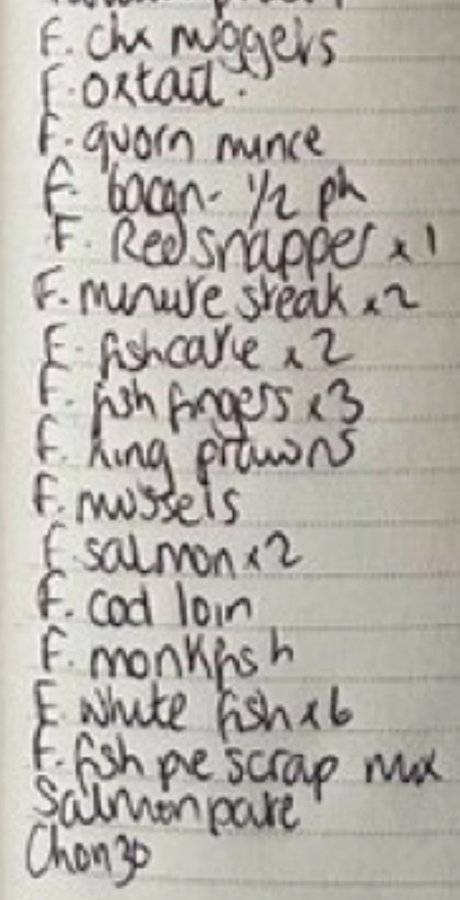 F. chx nuggets
F. oxtail.
F. quorn mince
F. bacon - 1/2 pk
F. Red snapper x 1
F. minute steak x 2
F. fishcake x 2
F. fish fingers x 3
F. king prawns
F. mussels
F. salmon x 2
F. cod loin
F. monkfish
F. white fish x 6
F. fish pie scrap mix
Salmon pate
Chorizo